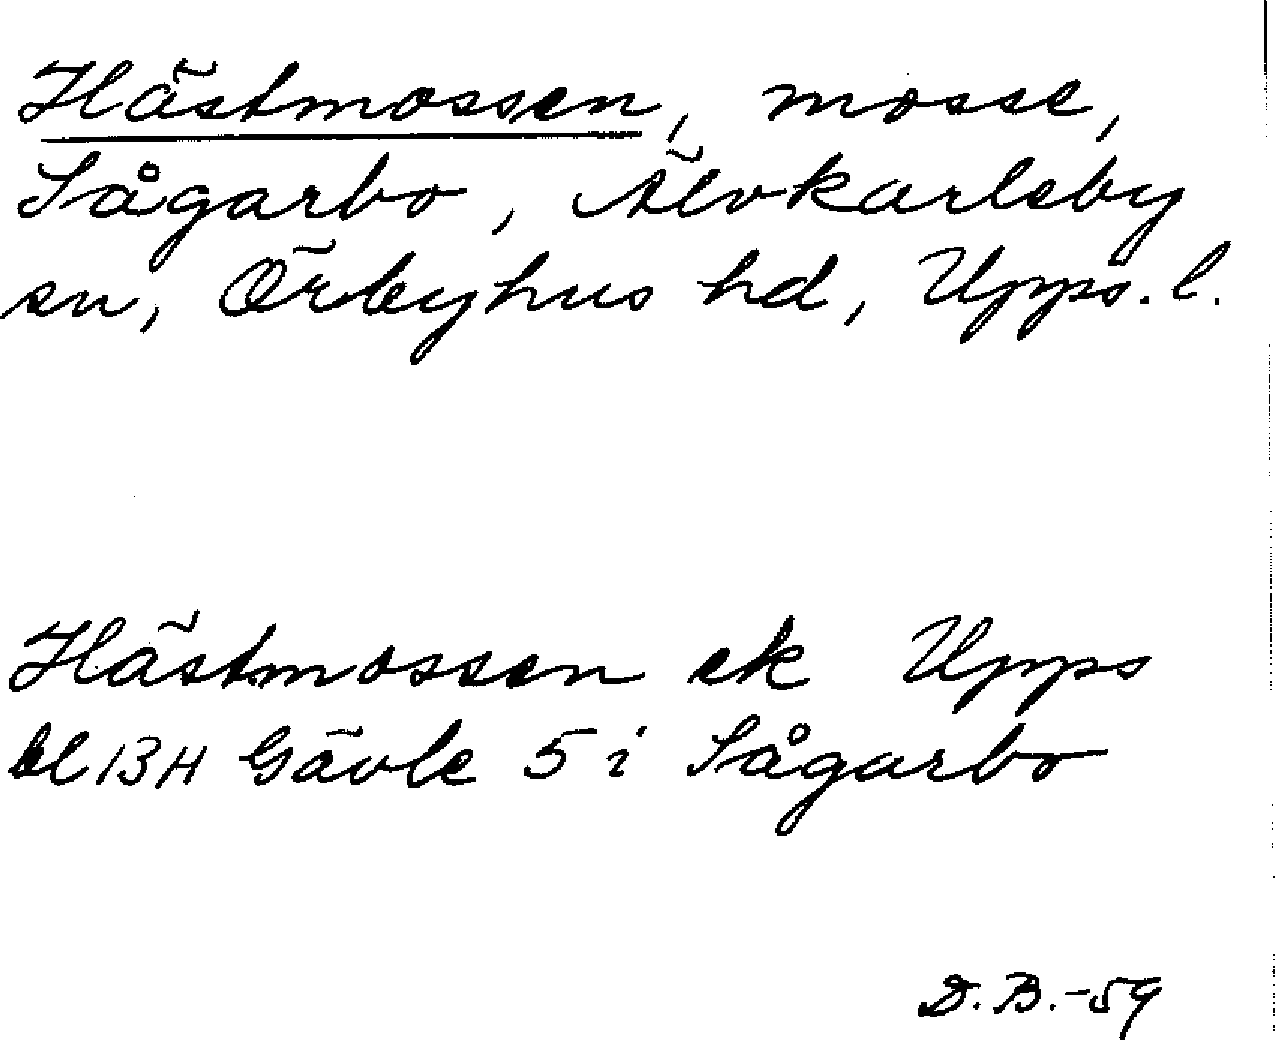 Hästmossen, mosse,
Sågarbo, Älvkarleby
sn, Örbyhus hd, Upps. l.
Hästmossen ek Upps
bl 13H Gävle 5 i Sågarbo
D.B.-59